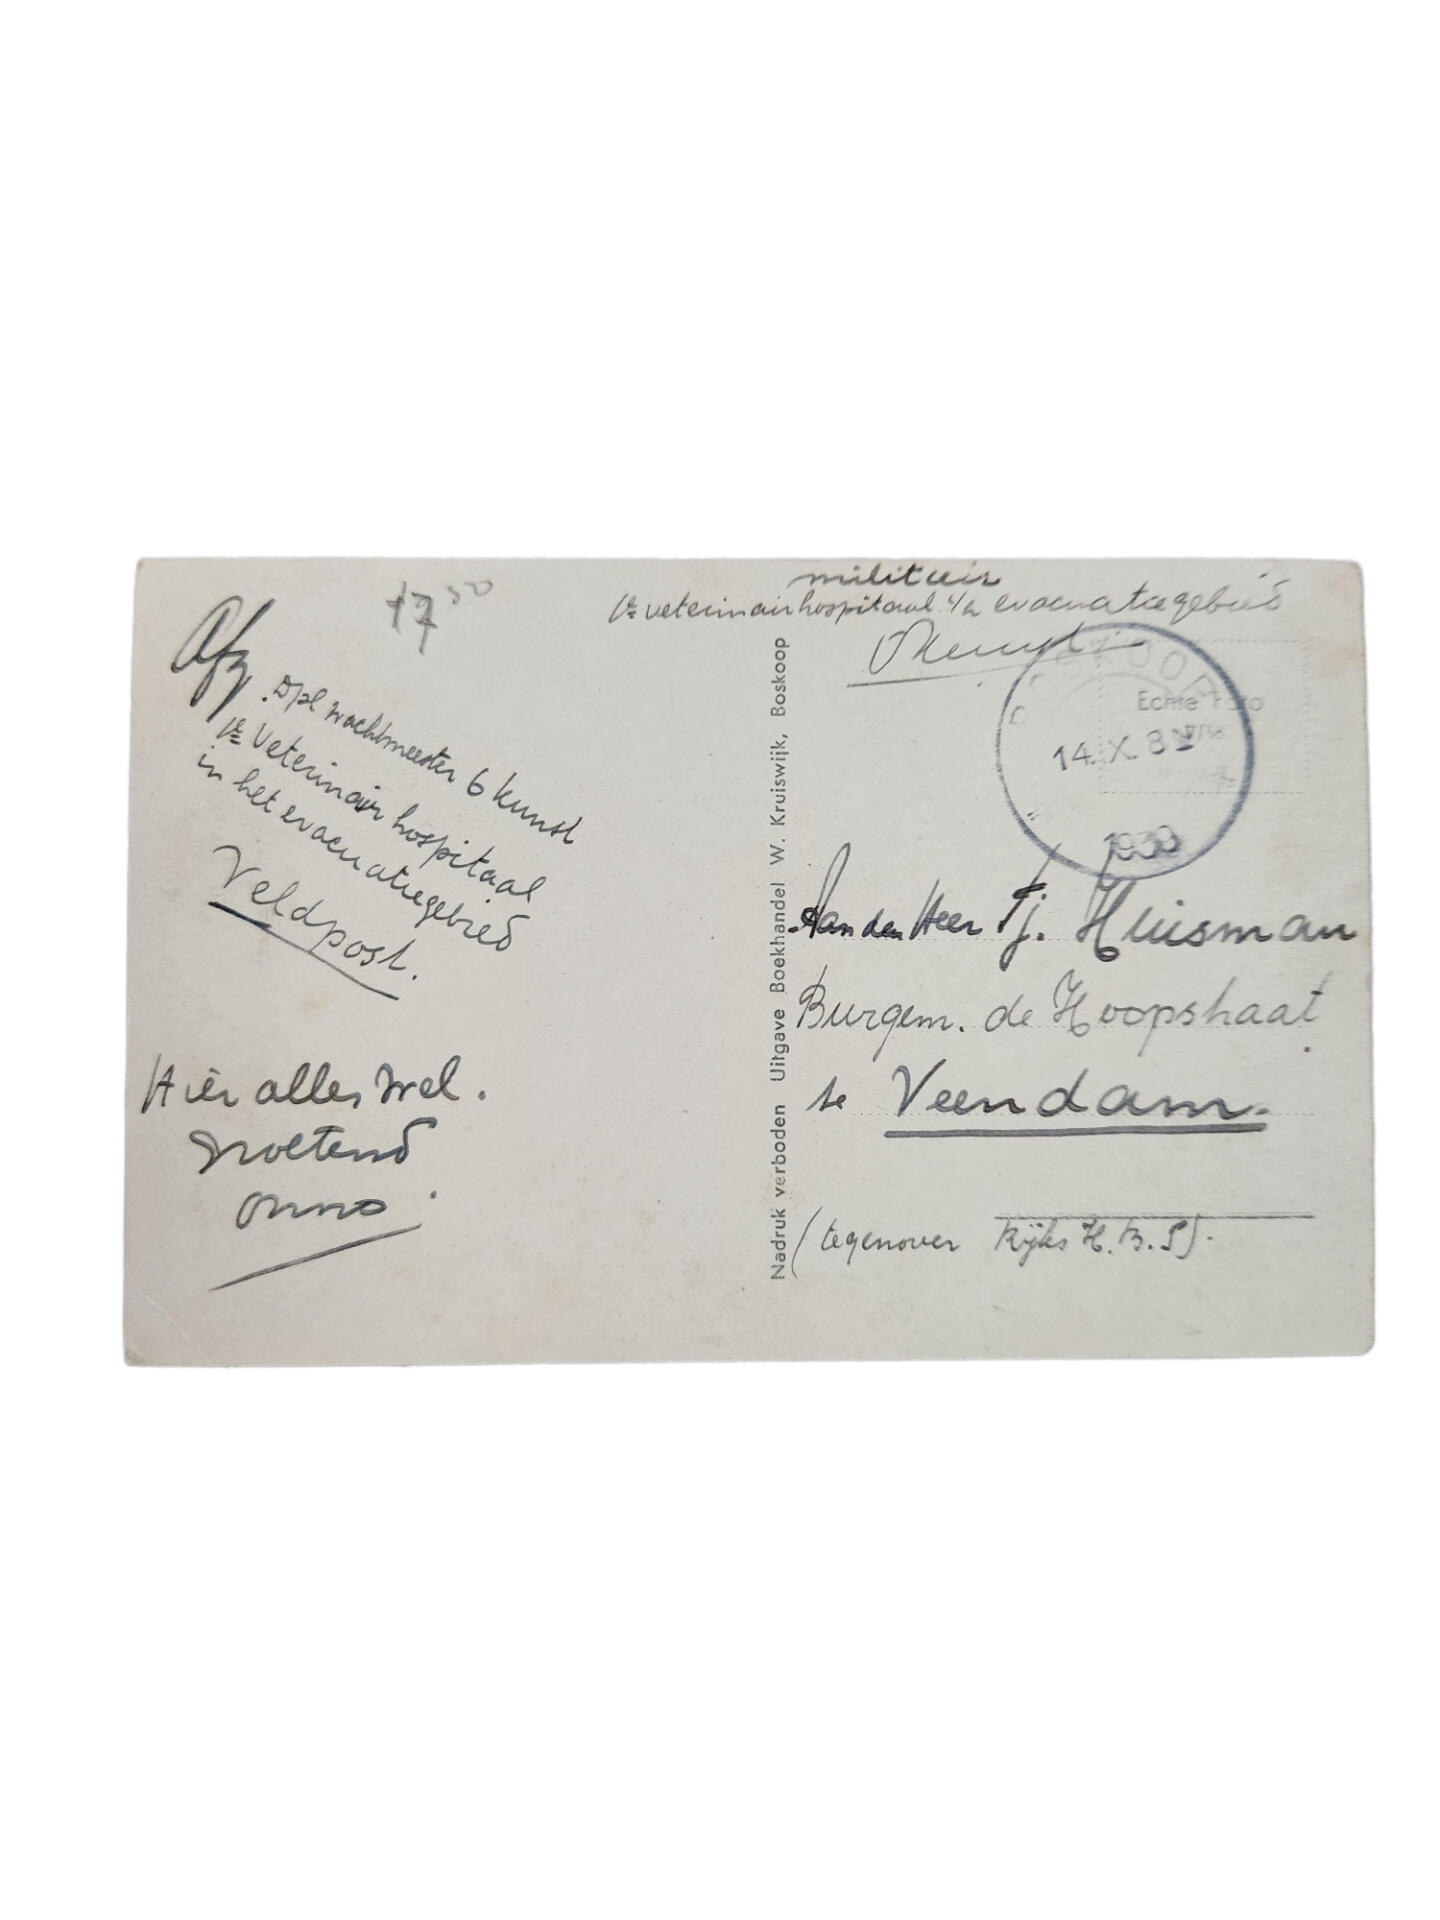 17⁵⁰
Afz
. Dpl wachtmeester 6 kunst
1e Veterinair hospitaal
in het evacuatiegebied
Veldpost.
Hier alles wel.
groetend
Onno.
Nadruk verboden Uitgave Boekhandel W. Kruiswijk, Boskoop
militair
1e veterinair hospitaal i/h evacuatiegebied
Dienst
BOSKOOP
Echte Foto
14.X.8
1939
Aan den Heer Tj. Huisman
Burgem. de Hoopstraat.
te Veendam.
(tegenover Rijks H.B.S).